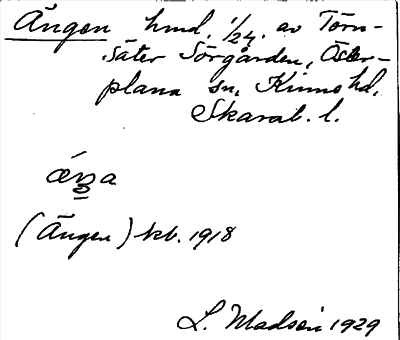 Ängen hmd. 1/24. av Törn-
säter Sörgården, Öster-
plana sn, Kinne hd,
Skarab. l.
(Ängen) kb. 1918
L. Madsén 1929